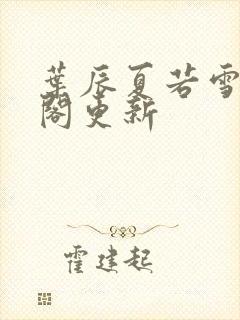 葉辰夏若雪
閣更新
霍建起